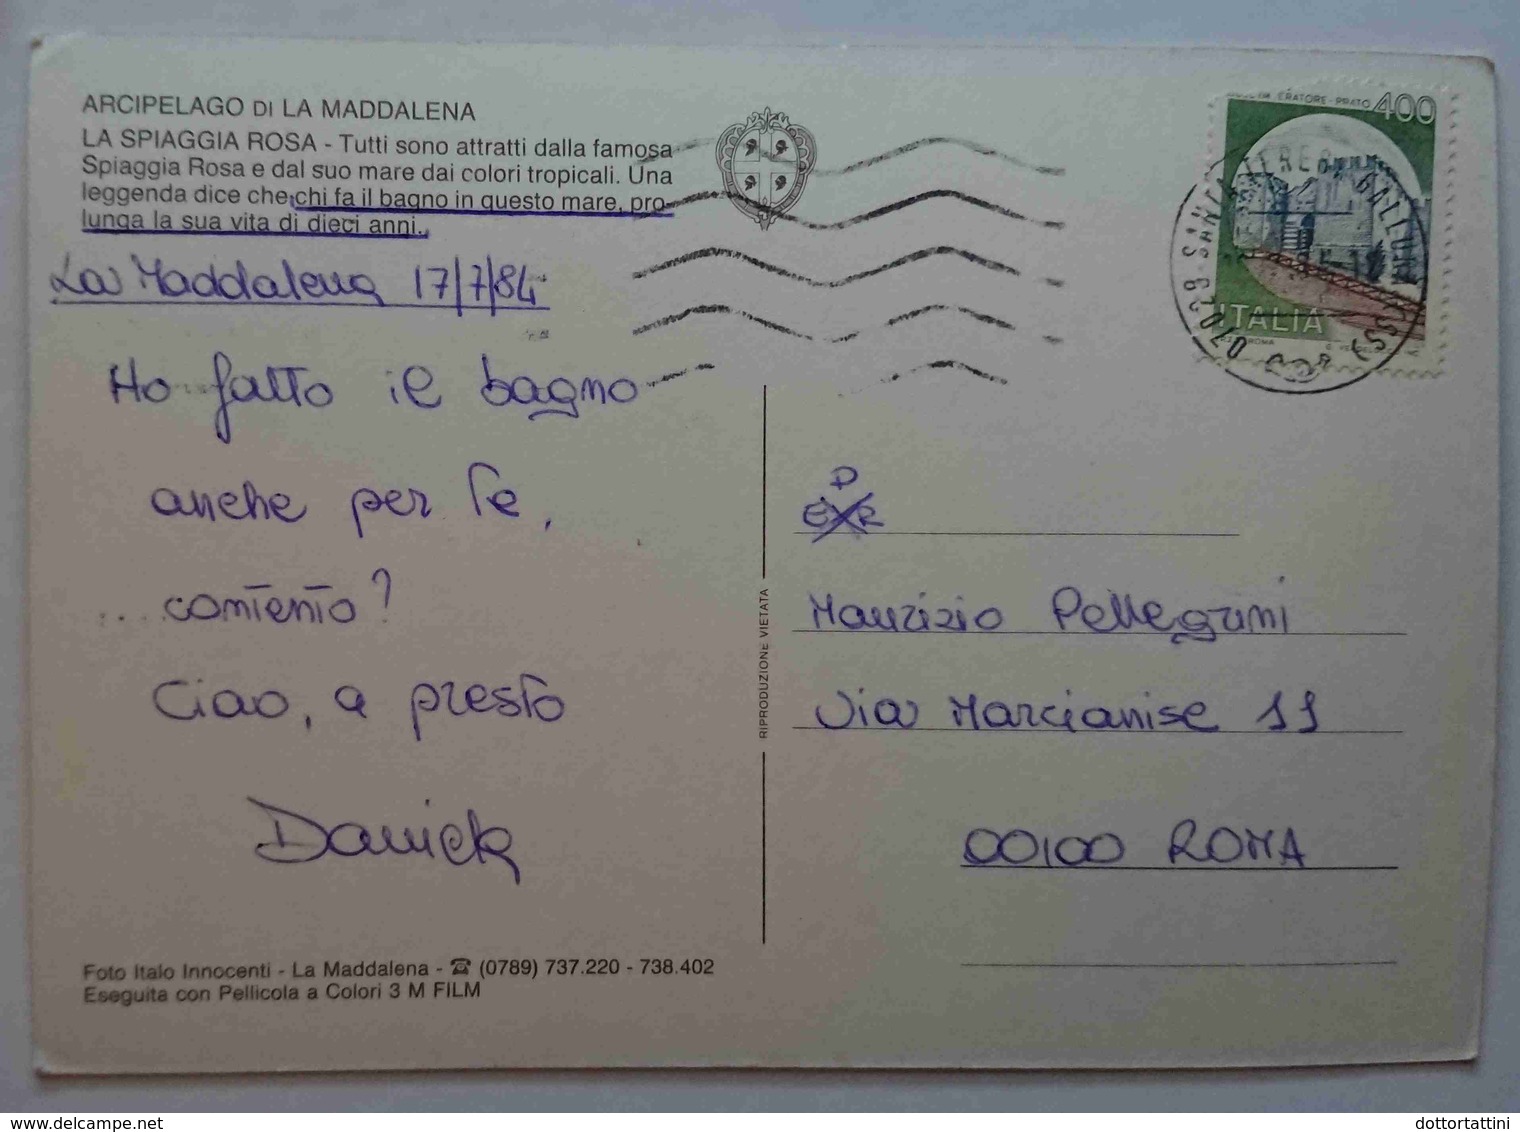 ARCIPELAGO DI LA MADDALENA
LA SPIAGGIA ROSA - Tutti sono attratti dalla famosa
Spiaggia Rosa e dal suo mare dai colori tropicali. Una
leggenda dice che chi fa il bagno in questo mare, pro-
lunga la sua vita di dieci anni.
La Maddalena 17/7/84
Ho fatto il bagno
anche per te,
... contento?
Ciao, a presto
Daniela
Foto Italo Innocenti - La Maddalena - ☎ (0789) 737.220 - 738.402
Eseguita con Pellicola a Colori 3 M FILM
RIPRODUZIONE VIETATA
PRATO 400
ITALIA
ROMA
07028 SANTA TERESA GALLURA (SS)
Maurizio Pellegrini
Via Marcianise 11
00100 ROMA
dottortattini